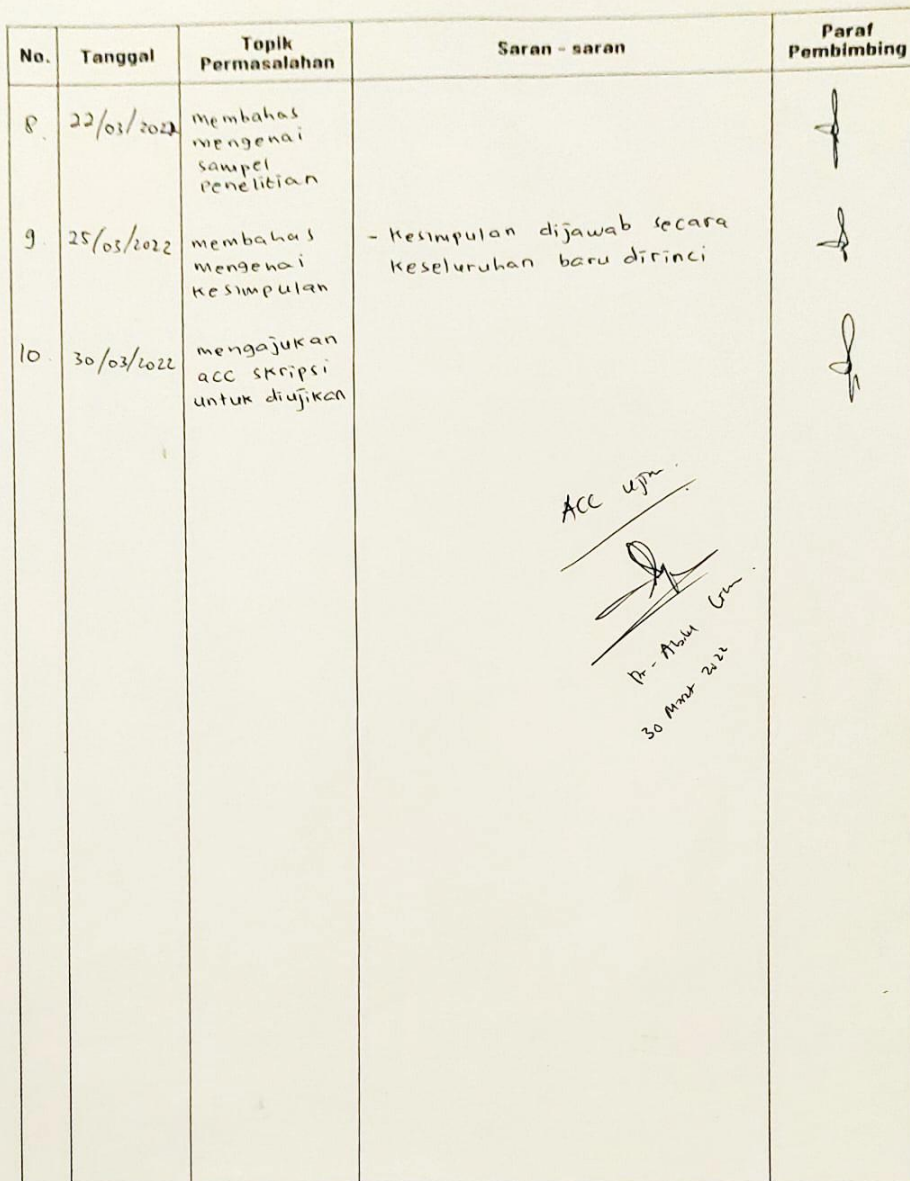 No.
Tanggal
Topik
Permasalahan
Saran - saran
Paraf
Pembimbing
8.
22/03/2022
membahas
mengenai
sampel
penelitian
9.
25/03/2022
membahas
mengenai
kesimpulan
- Kesimpulan dijawab secara
keseluruhan baru dirinci
10.
30/03/2022
mengajukan
acc skripsi
untuk diujikan
ACC
Dr.
30 Maret 2022